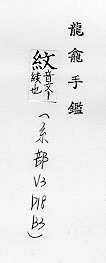 龍龕手鑑
紋音文丨綾也
(糸部
V3
P18
B3)